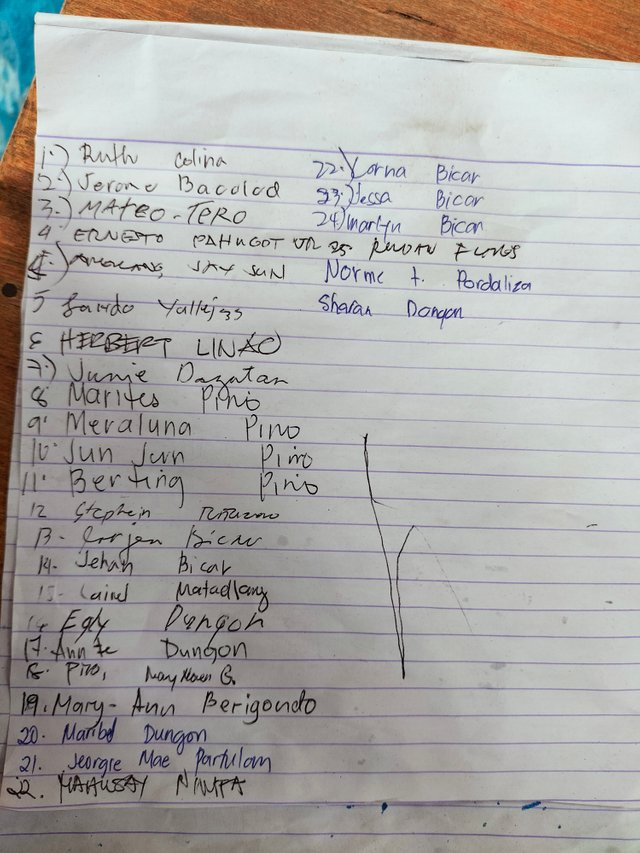 1.) Ruth Colina
2.) Jerome Bacolod
3.) MATEO-TERO
4 ERNESTO PAHUGOT JR
JAY SUN
5 Yallejos
6 HERBERT LINAO
7.) Junie Dagatan
8. Marites Pino
9. Meraluna Pino
10. Jun Jun Pino
11. Berting Pino
12 Stephein
13- Bicar
14. Jehan Bicar
15-
16 Egly Dungon
17. Ann Dungon
18. Pino, G.
19. Mary-Ann Berigondo
20. Maribel Dungon
21. Jeorgie Mae Partulam
22. NIMFA
22.) Lorna Bicar
23.) Jessa Bicar
24) marlyn Bicar
25.
Norme t. Pardaliza
Sharan Dongon